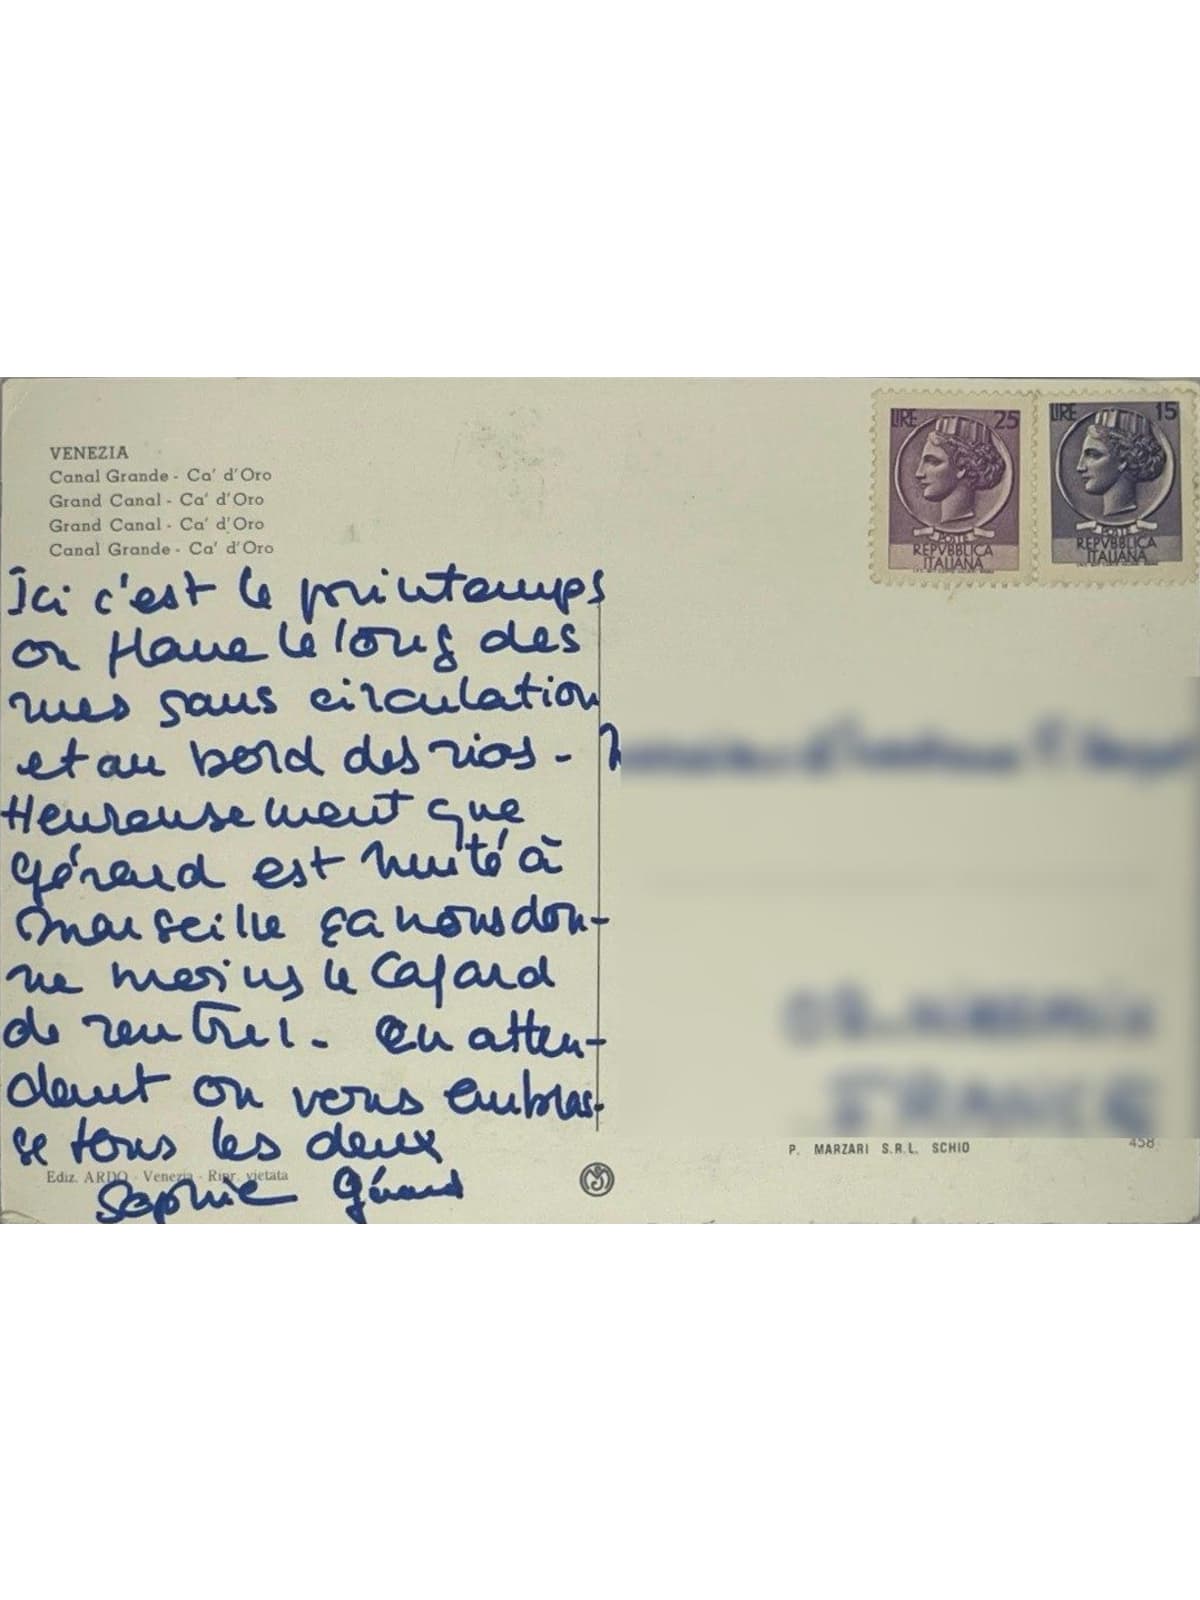 VENEZIA
Canal Grande - Ca' d'Oro
Grand Canal - Ca' d'Oro
Grand Canal - Ca' d'Oro
Canal Grande - Ca' d'Oro
LIRE 25
POSTE
REPVBBLICA
ITALIANA
LIRE 15
POSTE
REPVBBLICA
ITALIANA
Ici c'est le printemps
on flane le long des
rues sans circulation
et au bord des rios -
Heureusement que
Gérard est muté à
Marseille ça nous don-
ne moins le cafard
de rentrer. En atten-
dant on vous embras-
se tous les deux
Sophie Gérard
FRANCE
P. MARZARI S.R.L. SCHIO
458
Ediz. ARDO - Venezia - Ripr. vietata